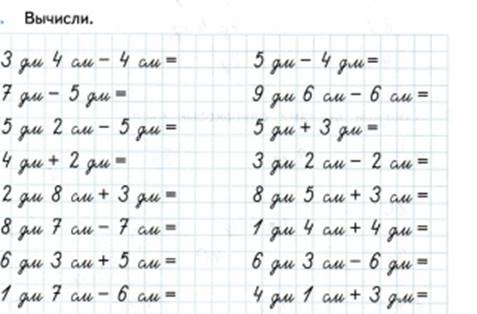 . Вычисли.
3 дм 4 см - 4 см =
7 дм - 5 дм =
5 дм 2 см - 5 дм =
4 дм + 2 дм =
2 дм 8 см + 3 дм =
8 дм 7 см - 7 см =
6 дм 3 см + 5 см =
1 дм 7 см - 6 см =
5 дм - 4 дм =
9 дм 6 см - 6 см =
5 дм + 3 дм =
3 дм 2 см - 2 см =
8 дм 5 см + 3 см =
1 дм 4 см + 4 дм =
6 дм 3 см - 6 дм =
4 дм 1 см + 3 дм =